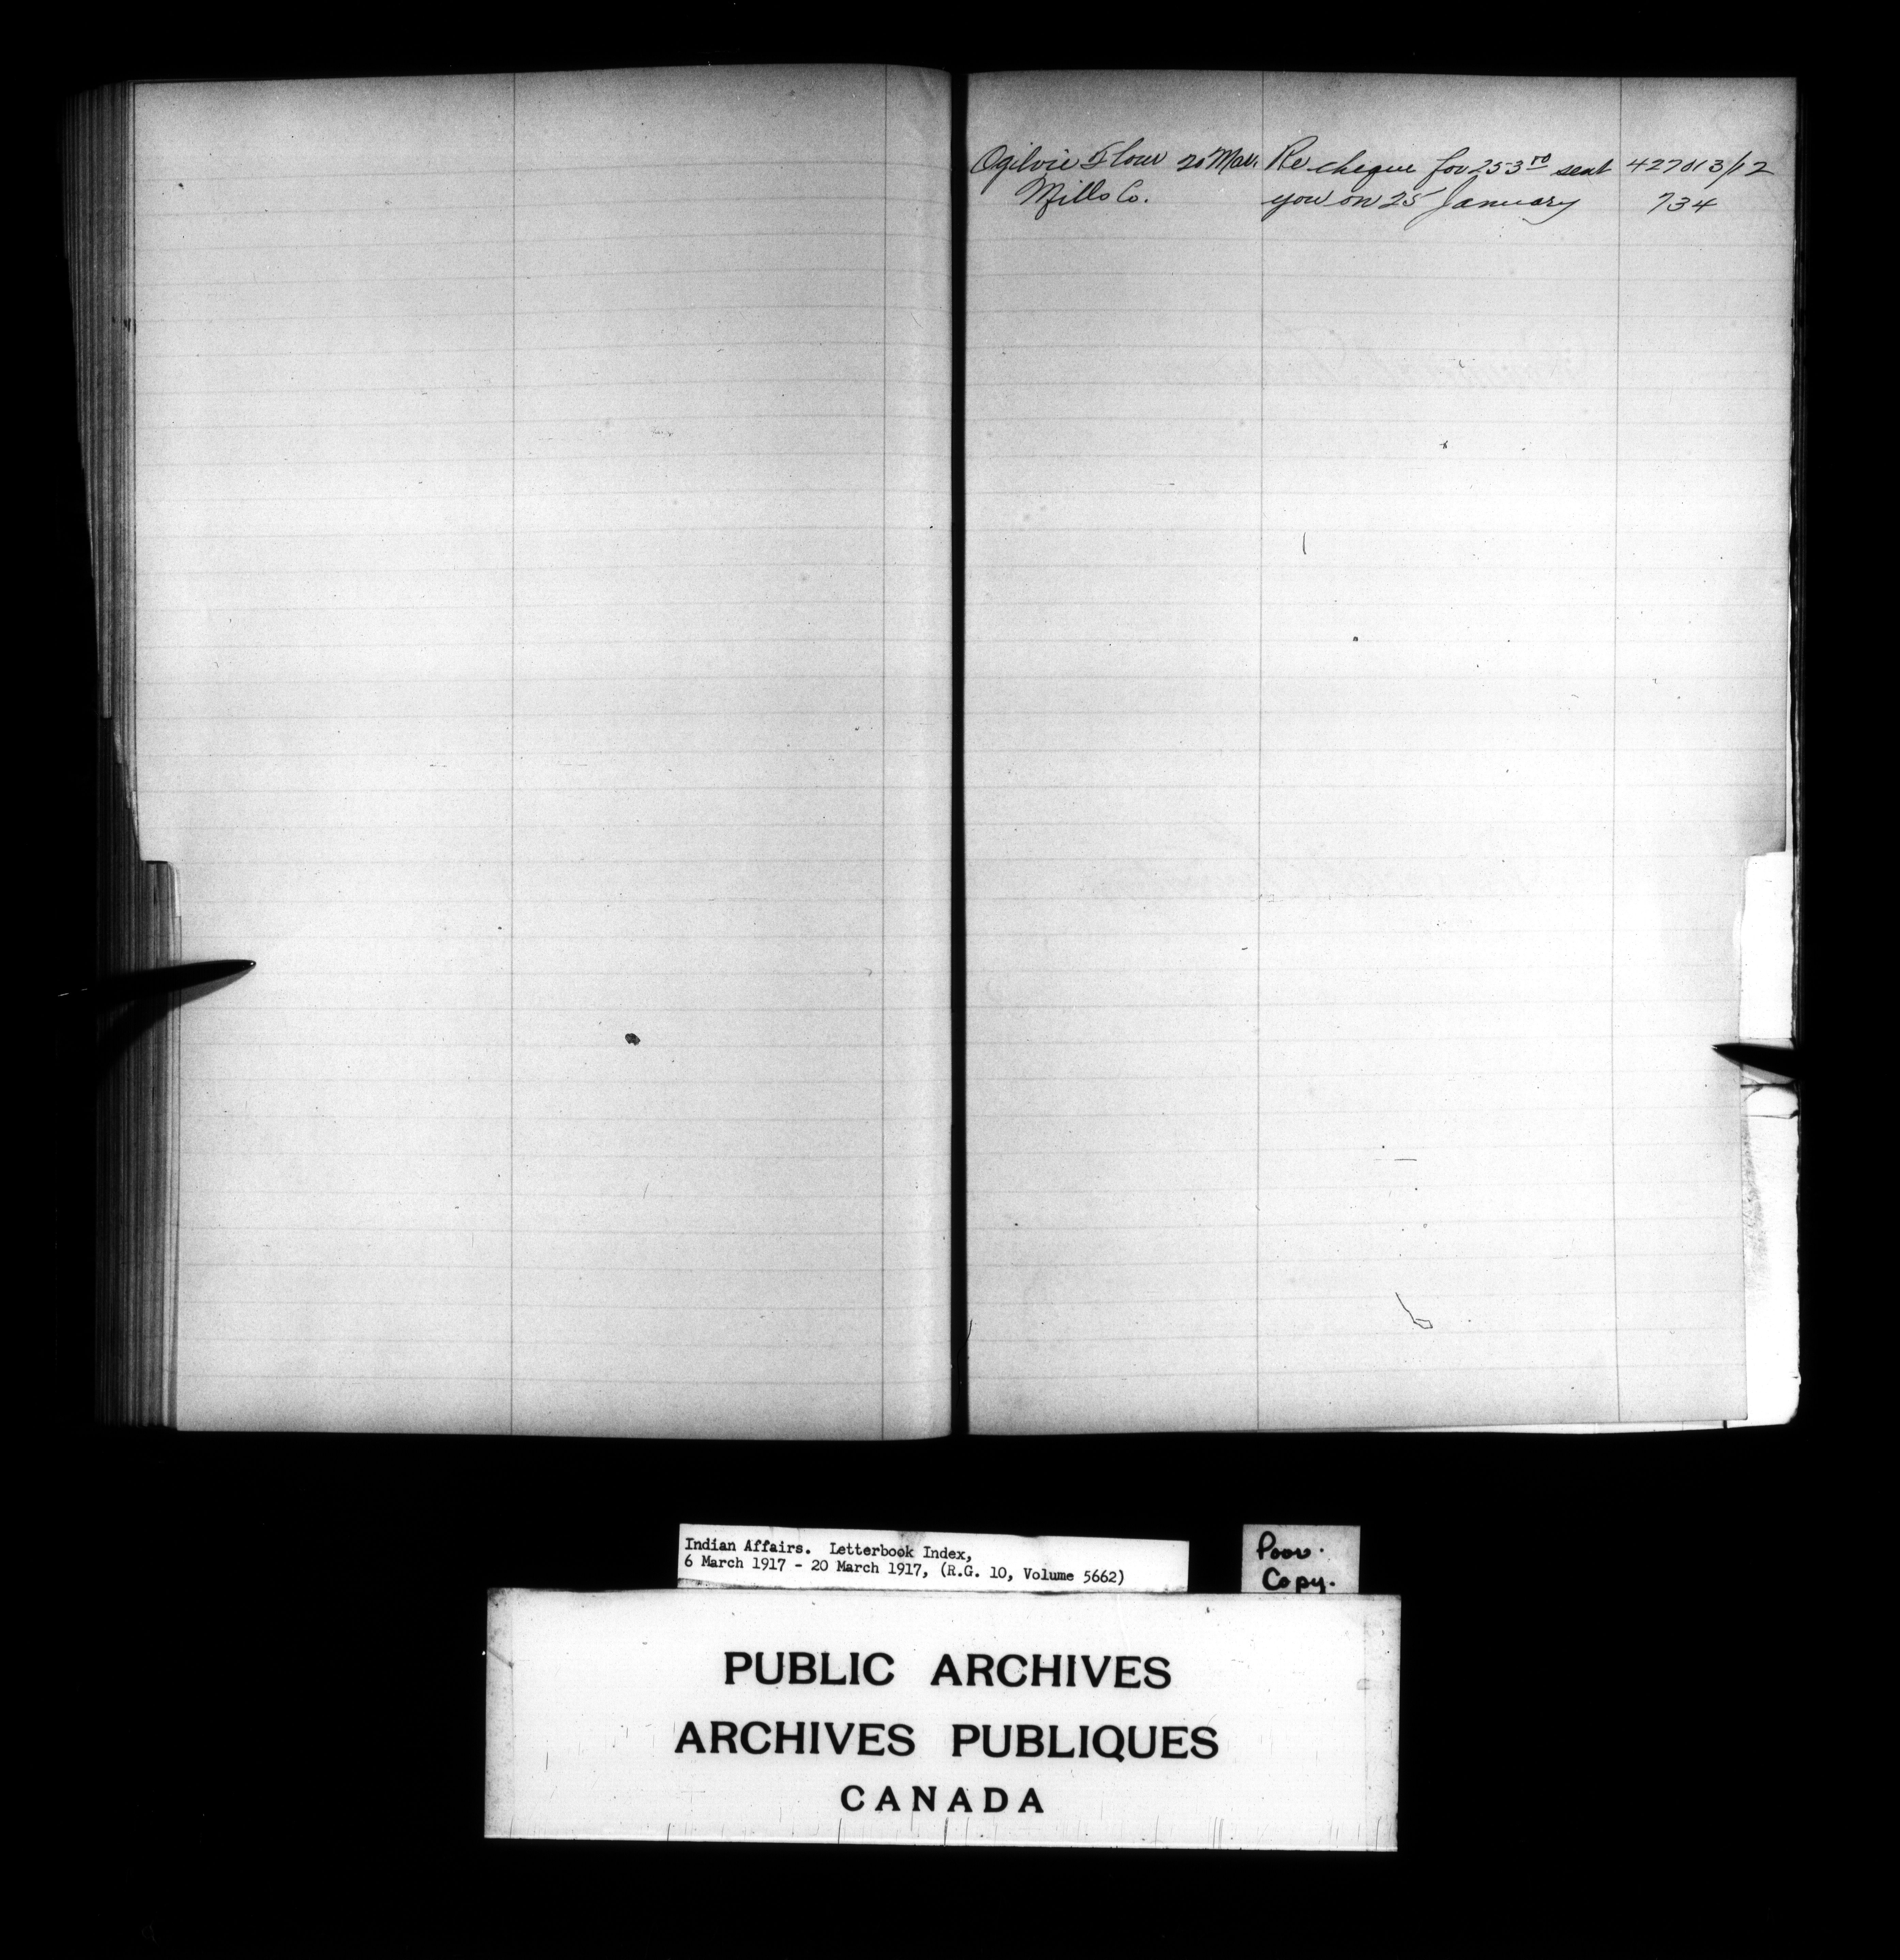 Ogilvie Flour 20 Mar. Re cheque for 253⁷⁰ sent 427013/12
Mills Co. you on 25 January 734
Indian Affairs. Letterbook Index,
6 March 1917 - 20 March 1917, (R.G. 10, Volume 5662)
Poor.
Copy.
PUBLIC ARCHIVES
ARCHIVES PUBLIQUES
CANADA